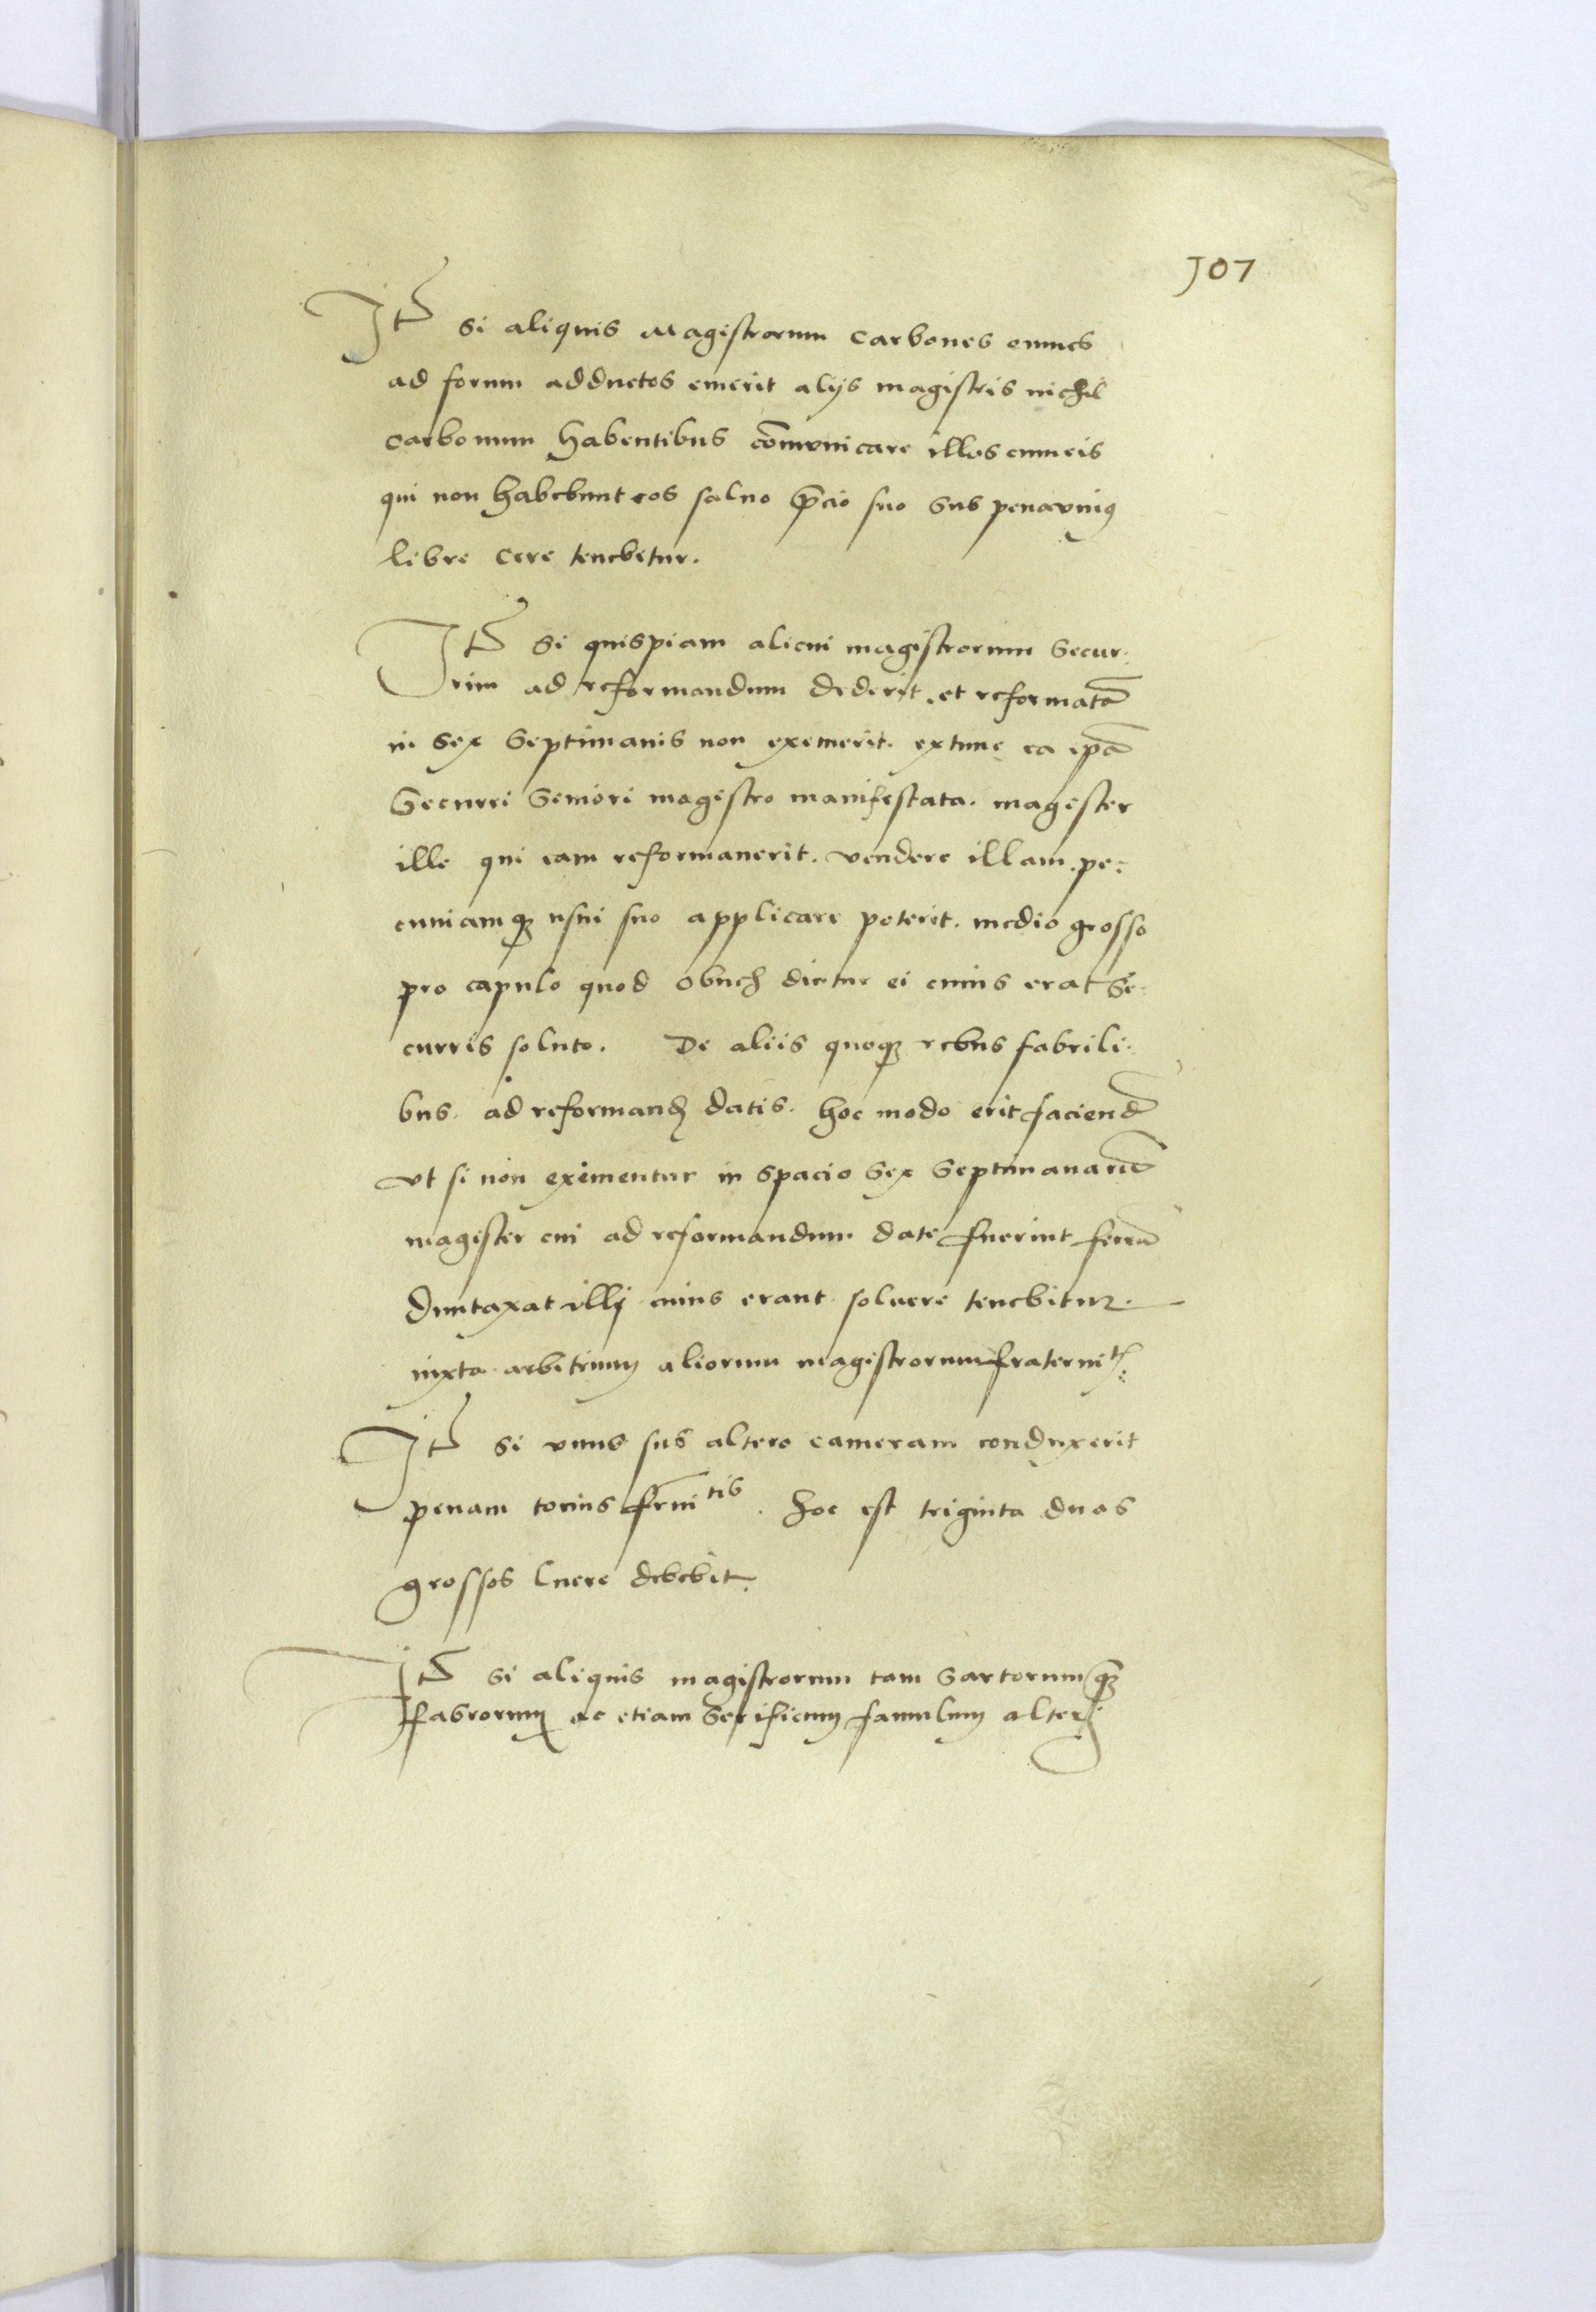 107
Itē si aliquis Magistrorum carbones omnes
ad forum adductos emerit alijs magistris nichil
carbonum habentibus cōmunicare illos cum eis
qui non habebunt eos saluo p̄cio suo sub pena vniꝰ
libre cere tenebetur.
Itē si quispiam alicui magistrorum secur-
rim ad reformandum dederit. et reformatā
in sex septimanis non exemerit. extunc ea ipā
securri seniori magistro manifestata. magister
ille qui eam reformauerit. vendere illam. pe-
cuniamqꝫ usui suo applicare poterit. medio grosso
pro capulo quod obuch dictur ei cuius erat se-
curris soluto. De aliis quoqꝫ rebus fabrili-
bus. ad reformandꝫ datis. hoc modo erit faciend̄
vt si non eximentur in spacio sex septimanarū
magister cui ad reformandum date fuerint ferrū
duntaxat illi cuius erant soluere tenebitur
iuxta arbitrium aliorum magistrorum fraternitꝭ
Itē si vnus sub altero cameram conduxerit
penam tocius fr̄nitis. hoc est triginta duos
grossos luere debebit.
Itē si aliquis magistrorum tam sartorum qꝫ
fabrorum ac etiam serificum famulum alteri